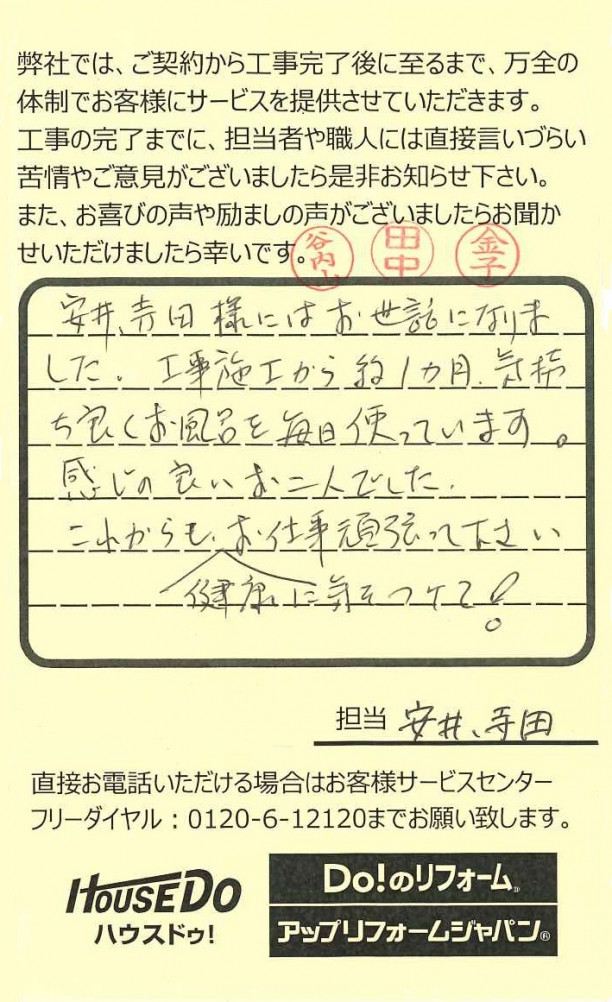 弊社では、ご契約から工事完了後に至るまで、万全の
体制でお客様にサービスを提供させていただきます。
工事の完了までに、担当者や職人には直接言いづらい
苦情やご意見がございましたら是非お知らせ下さい。
また、お喜びの声や励ましの声がございましたらお聞か
せいただけましたら幸いです。
谷内山
田中
金子
安井、寺田様にはお世話になりま
した。工事施工から約1カ月、気持
ち良くお風呂を毎日使っています。
感じの良いお二人でした。
これからも、お仕事頑張って下さい
健康に気をつけて!
担当 安井、寺田
直接お電話いただける場合はお客様サービスセンター
フリーダイヤル:0120-6-12120までお願い致します。
HOUSEDO
ハウスドゥ!
Do!のリフォーム®
アップリフォームジャパン®